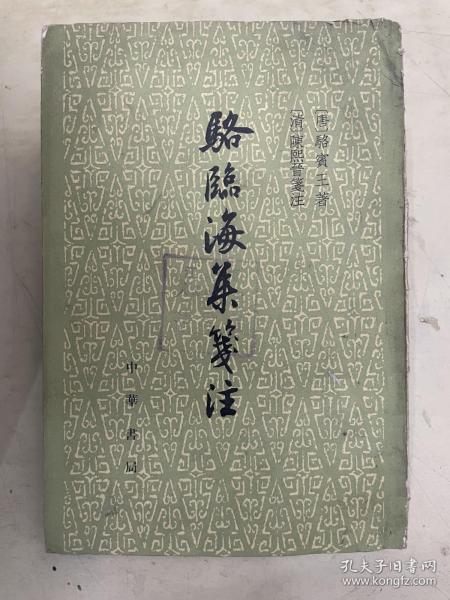 [唐]駱賓王著
[清]陳熙晉箋注
駱臨海集箋注
中華書局
孔夫子旧书网
www.kongfz.com